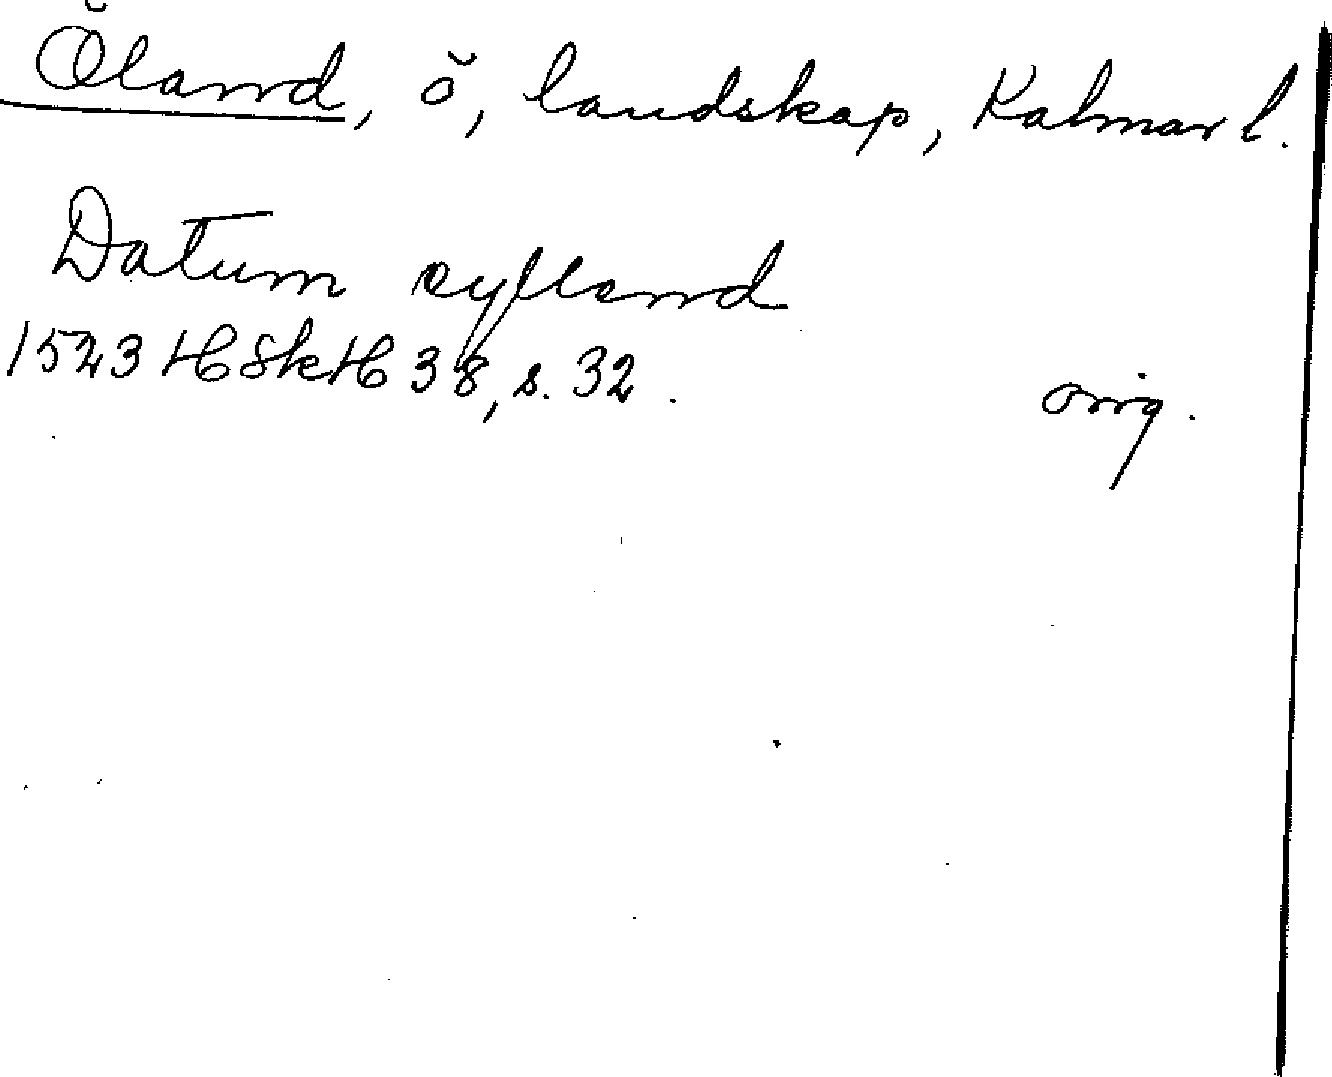 Öland, ö, landskap, Kalmar l.
Datum oylland
1523 HSkH 38, s. 32. orig.